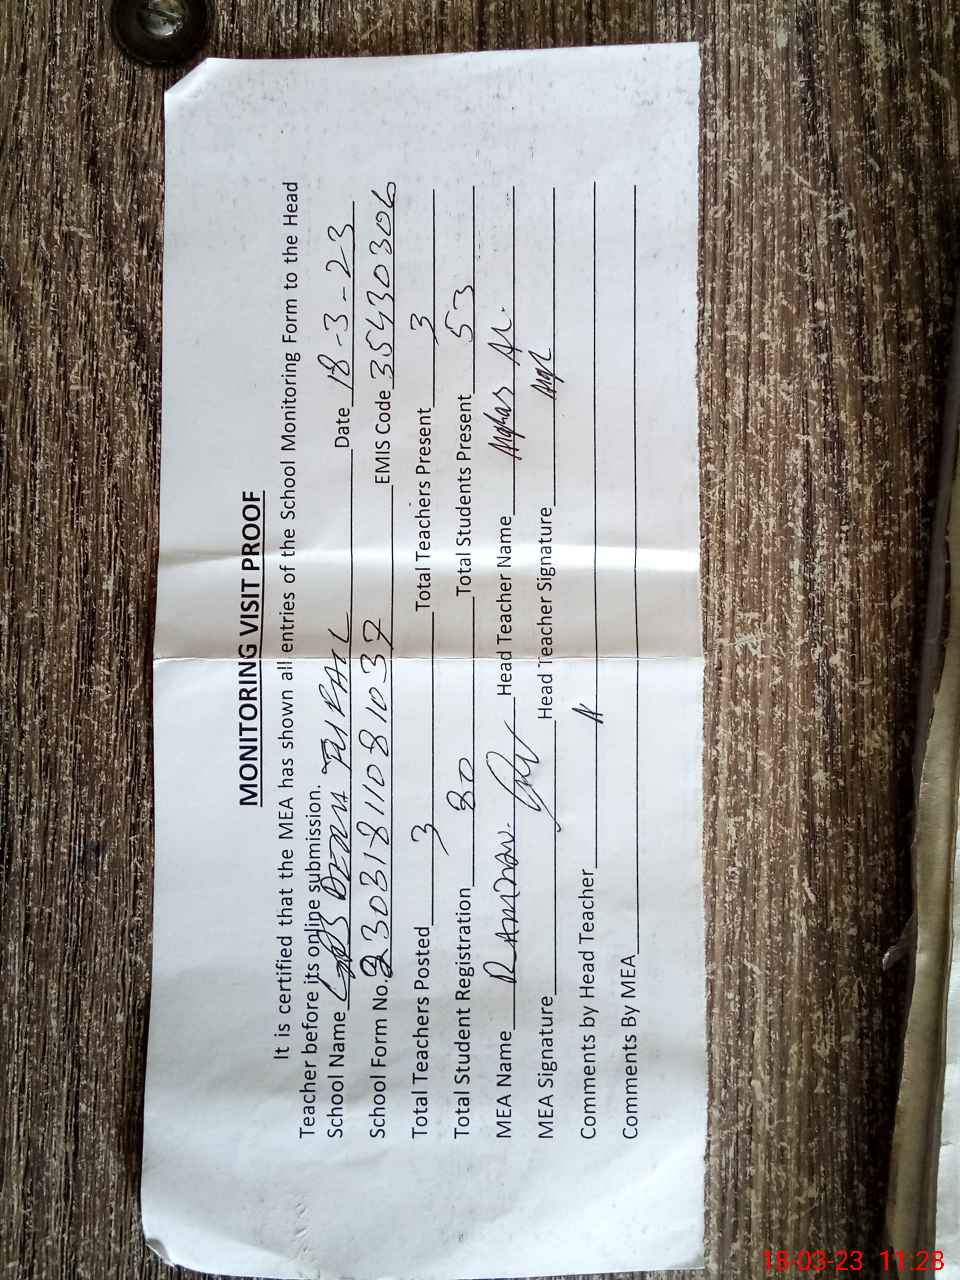 MONITORING VISIT PROOF
It is certified that the MEA has shown all entries of the School Monitoring Form to the Head
Teacher before its online submission.
School Name GPS Date 18-3-23
School Form No. 23031811081037 EMIS Code 35430306
Total Teachers Posted 3 Total Teachers Present 3
Total Student Registration 80 Total Students Present 53
MEA Name Head Teacher Name
MEA Signature Head Teacher Signature
Comments by Head Teacher
Comments By MEA
18-03-23 11:28